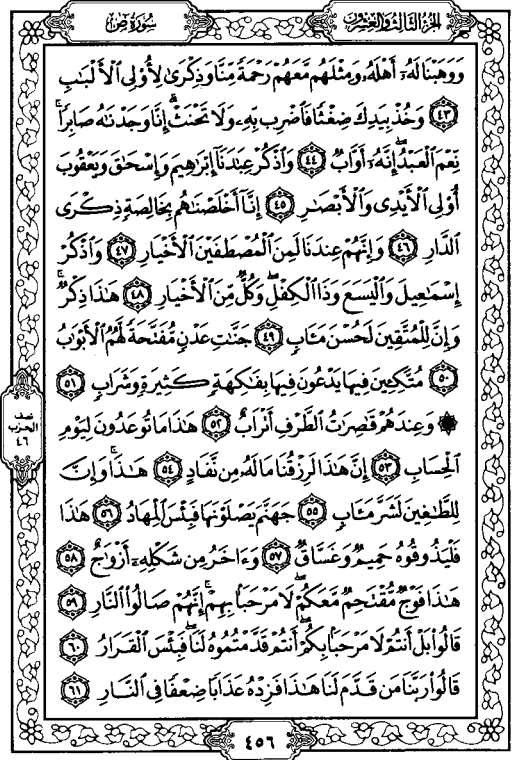 سُورَةُ صٓ
الجزء الثالث والعشرون
وَوَهَبْنَا لَهُۥٓ أَهْلَهُۥ وَمِثْلَهُم مَّعَهُمْ رَحْمَةً مِّنَّا وَذِكْرَىٰ لِأُوْلِى ٱلْأَلْبَٰبِ
٤٣ وَخُذْ بِيَدِكَ ضِغْثًا فَٱضْرِب بِّهِۦ وَلَا تَحْنَثْ ۗ إِنَّا وَجَدْنَٰهُ صَابِرًا ۚ
نِّعْمَ ٱلْعَبْدُ ۖ إِنَّهُۥٓ أَوَّابٌ ٤٤ وَٱذْكُرْ عِبَٰدَنَآ إِبْرَٰهِيمَ وَإِسْحَٰقَ وَيَعْقُوبَ
أُوْلِى ٱلْأَيْدِى وَٱلْأَبْصَٰرِ ٤٥ إِنَّآ أَخْلَصْنَٰهُم بِخَالِصَةٍ ذِكْرَى
ٱلدَّارِ ٤٦ وَإِنَّهُمْ عِندَنَا لَمِنَ ٱلْمُصْطَفَيْنَ ٱلْأَخْيَارِ ٤٧ وَٱذْكُرْ
إِسْمَٰعِيلَ وَٱلْيَسَعَ وَذَا ٱلْكِفْلِ ۖ وَكُلٌّ مِّنَ ٱلْأَخْيَارِ ٤٨ هَٰذَا ذِكْرٌ ۚ
وَإِنَّ لِلْمُتَّقِينَ لَحُسْنَ مَـَٔابٍ ٤٩ جَنَّٰتِ عَدْنٍ مُّفَتَّحَةً لَّهُمُ ٱلْأَبْوَٰبُ
٥٠ مُتَّكِـِٔينَ فِيهَا يَدْعُونَ فِيهَا بِفَٰكِهَةٍ كَثِيرَةٍ وَشَرَابٍ ٥١
۞ وَعِندَهُمْ قَٰصِرَٰتُ ٱلطَّرْفِ أَتْرَابٌ ٥٢ هَٰذَا مَا تُوعَدُونَ لِيَوْمِ
ٱلْحِسَابِ ٥٣ إِنَّ هَٰذَا لَرِزْقُنَا مَا لَهُۥ مِن نَّفَادٍ ٥٤ هَٰذَا ۚ وَإِنَّ
لِلطَّٰغِينَ لَشَرَّ مَـَٔابٍ ٥٥ جَهَنَّمَ يَصْلَوْنَهَا فَبِئْسَ ٱلْمِهَادُ ٥٦ هَٰذَا
فَلْيَذُوقُوهُ حَمِيمٌ وَغَسَّاقٌ ٥٧ وَءَاخَرُ مِن شَكْلِهِۦٓ أَزْوَٰجٌ ٥٨
هَٰذَا فَوْجٌ مُّقْتَحِمٌ مَّعَكُمْ ۖ لَا مَرْحَبًۢا بِهِمْ ۚ إِنَّهُمْ صَالُوا۟ ٱلنَّارِ ٥٩
قَالُوا۟ بَلْ أَنتُمْ لَا مَرْحَبًۢا بِكُمْ ۖ أَنتُمْ قَدَّمْتُمُوهُ لَنَا ۖ فَبِئْسَ ٱلْقَرَارُ ٦٠
قَالُوا۟ رَبَّنَا مَن قَدَّمَ لَنَا هَٰذَا فَزِدْهُ عَذَابًا ضِعْفًا فِى ٱلنَّارِ ٦١
نصف
الحزب
٤٦
٤٥٦